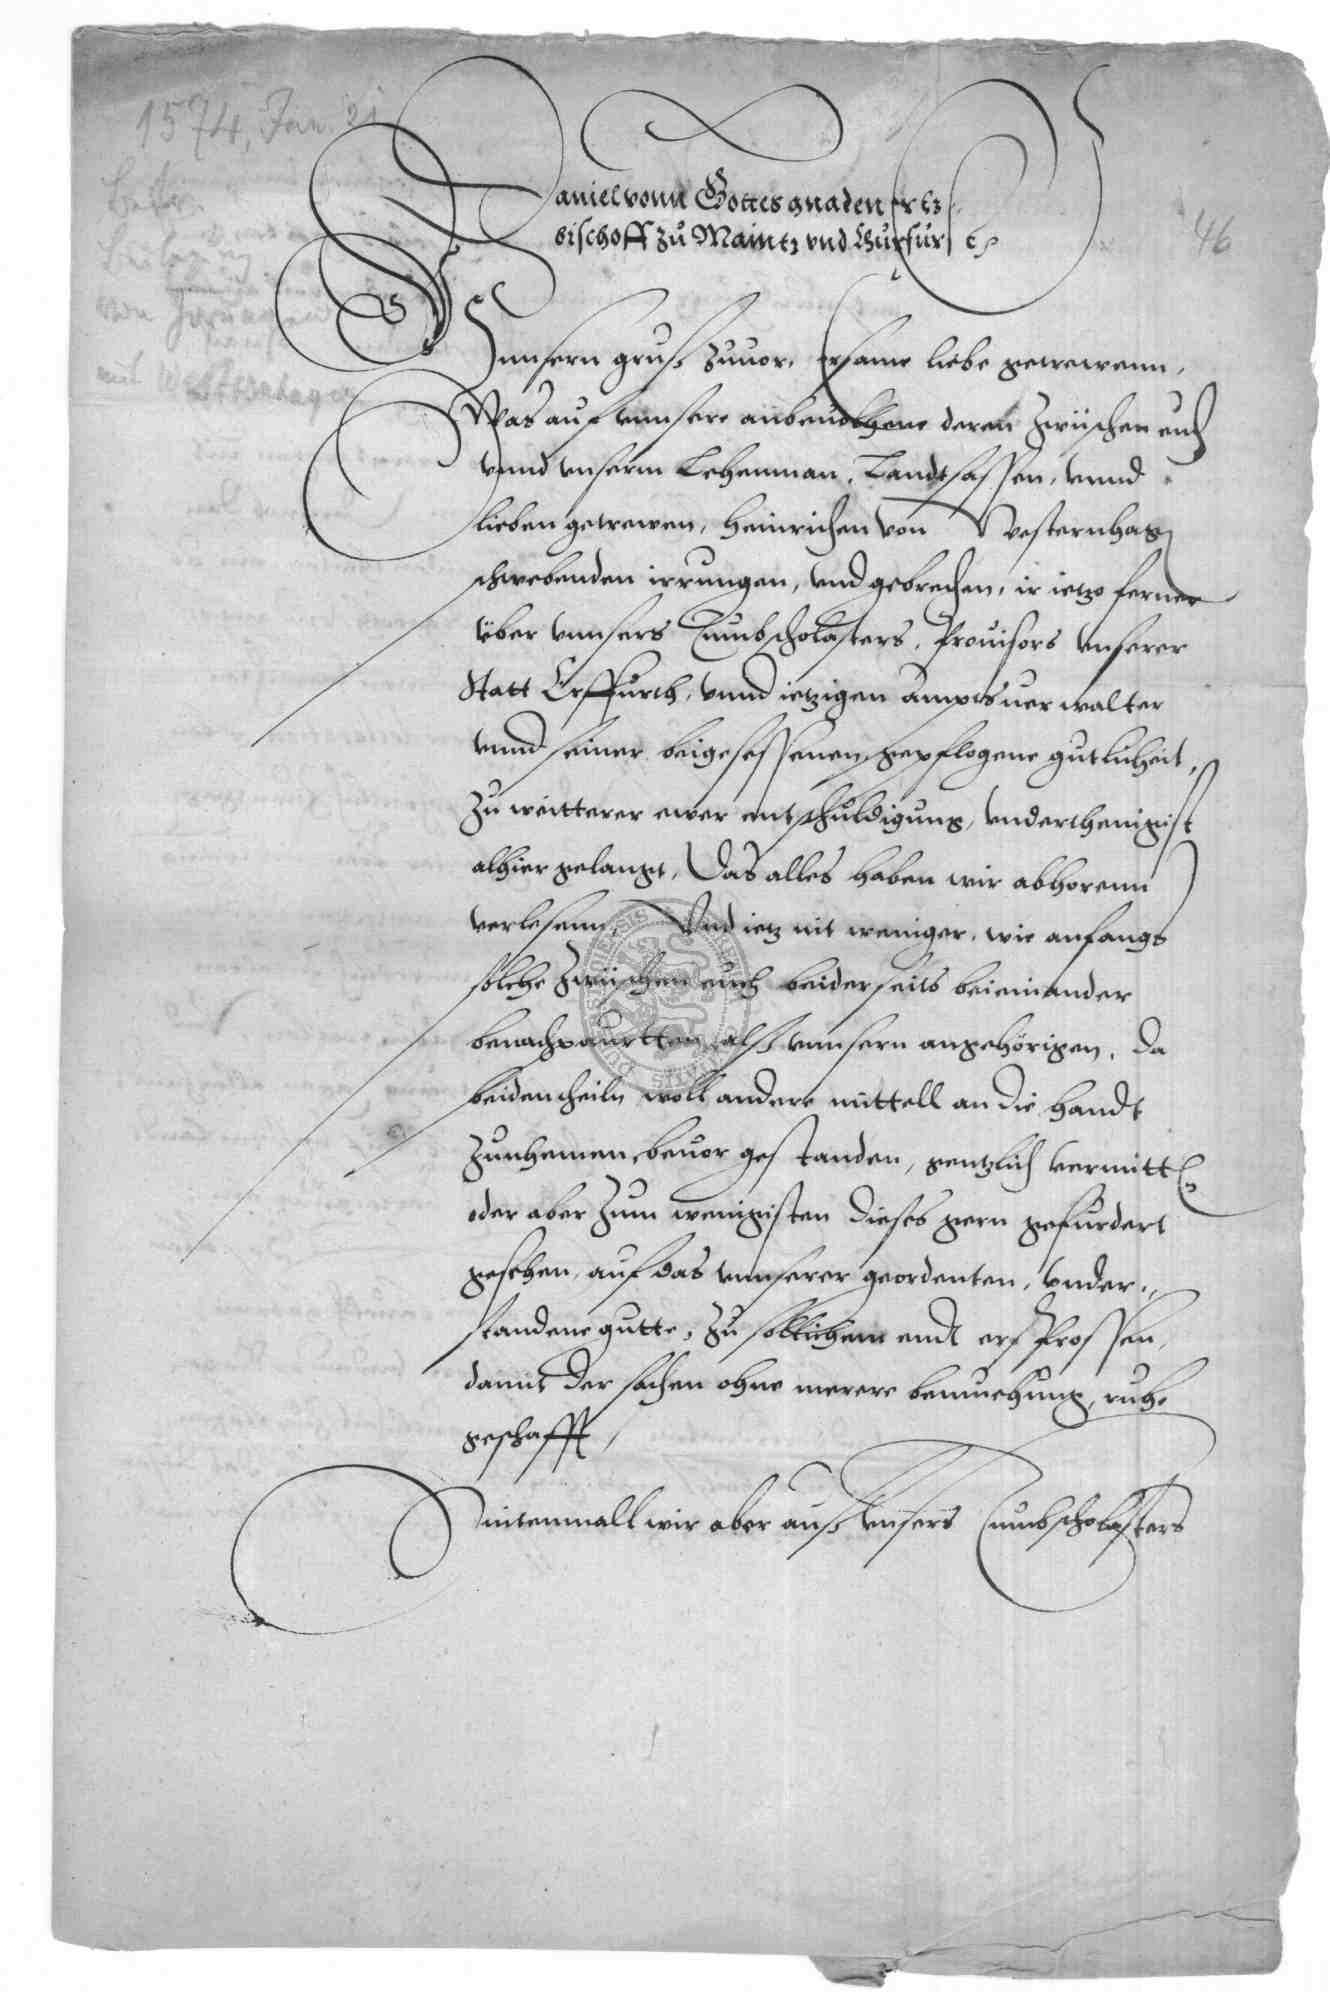 1574, Jan. 21
46
Daniel vonn Gottes gnaden Ertz
bischoff zu Maintz vnd Churfürst
Vnnsern gruß zuuor, Ersame liebe getrewenn,
Was auf vnnsere anbeuolhene deren zwüschen euch
vnnd vnserm Lehenman, Landtsassen, vnnd
lieben getrewen, Heinrichen von Westernhag
schwebenden irrungen, vnd gebrechen, ir ietzo ferner
über vnnsers Tumbscholasters, Prouisors vnserer
Statt Erffurth, vnnd ietzigen amptsuerwalter
vnnd seiner beigesessenen gepflogene gutlicheit,
zu weitterer ewer entschuldigung, vnderthenigist
alhier gelangt, Das alles haben wir abhorenn
verlesenn, Vnd ietz nit weniger, wie anfangs
solche zwüschen euch beiderseits beieinander
benachpaurtten, alß vnnsern angehörigen, da
beidentheiln woll andere mittell an die Handt
zunhemen, beuor gestanden, gentzlich vermitt
oder aber zum wenigisten dieses gern gefürdert
gesehen, auf das vnnserer geordenten, vnder„
standene gutte, zu sollichem endt ersprossen,
damit der sachen ohne merere bemuehung, ruhe
geschafft,
Sintenmall wir aber auß vnsers Tumbscholasters